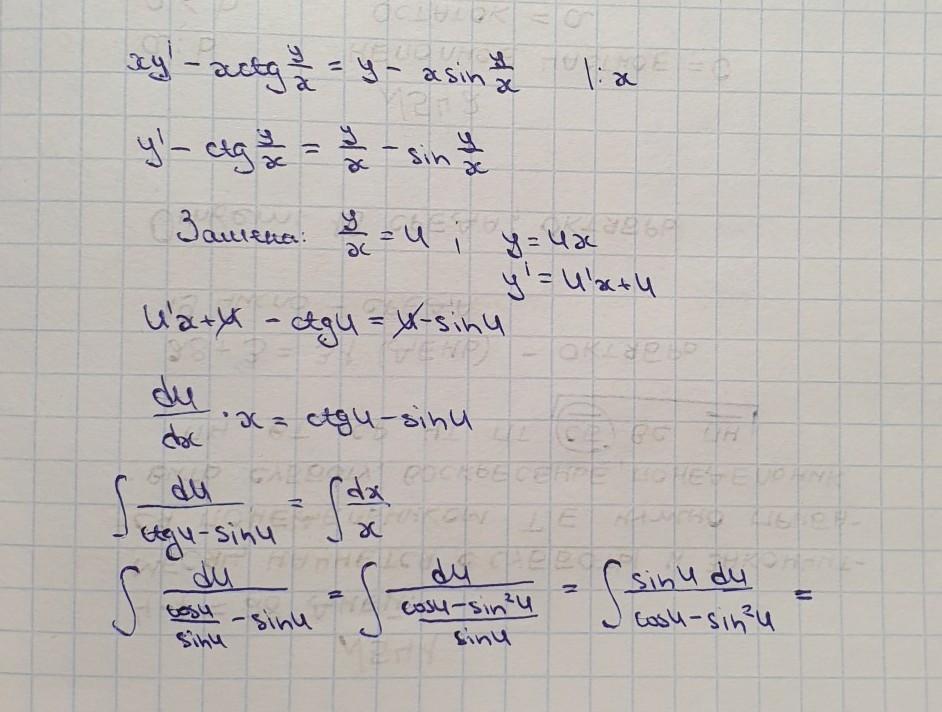 xy' - xctg y/x = y - xsin y/x |: x
y' - ctg y/x = y/x - sin y/x
Замена: y/x = u ; y = ux
y' = u'x + u
u'x + u - ctgu = u - sinu
du/dx · x = ctgu - sinu
∫ du/(ctgu - sinu) = ∫ dx/x
∫ du/(cosu/sinu - sinu) = ∫ du/((cosu - sin²u)/sinu) = ∫ sinu du/(cosu - sin²u) =